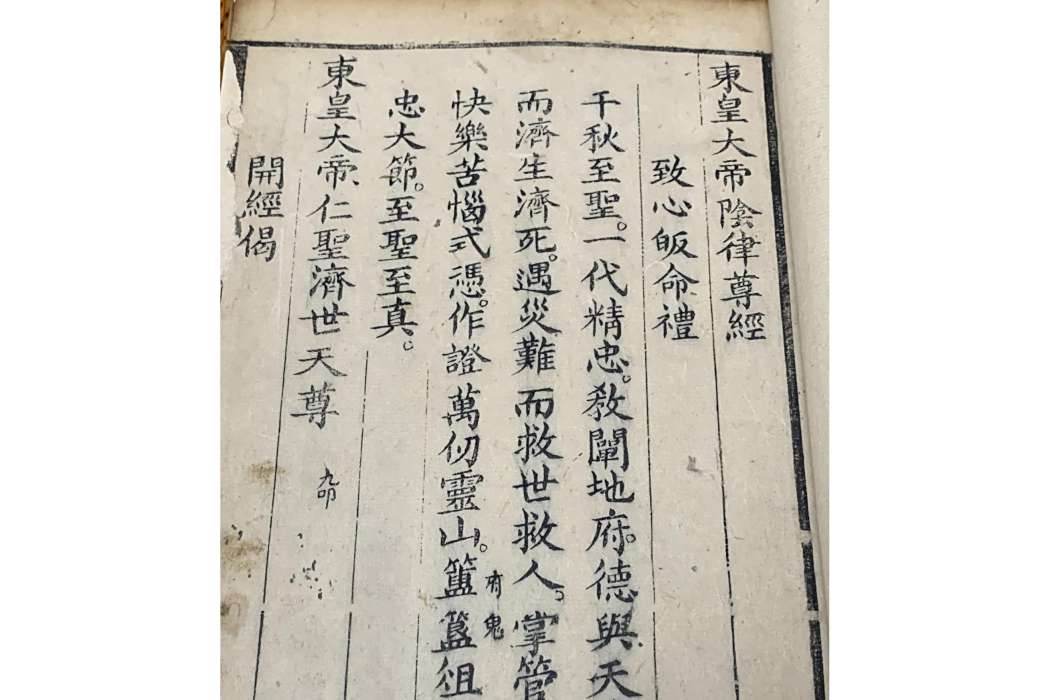 東皇大帝陰律尊經
致心皈命禮
千秋至聖。一代精忠。敎闡地府。德與天
而濟生濟死。遇災難而救世救人。掌管
快樂苦惱式憑。作證萬仞靈山。簠簋俎
有鬼
忠大節。至聖至真。
東皇大帝仁聖濟世天尊
九叩
開經偈